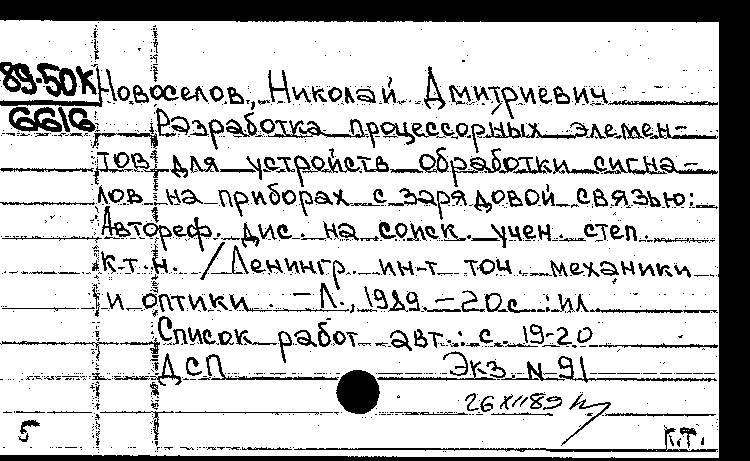 89-50К
6616
Новоселов, Николай Дмитриевич
Разработка процессорных элемен-
тов для устройств обработки сигна-
лов на приборах с зарядовой связью:
Автореф. дис. на соиск. учен. степ.
к.т.н. / Ленингр. ин-т точ. механики
и оптики. - Л., 1989. - 20с : ил.
Список работ авт.: с. 19-20
ДСП Экз. N 91
26 XII 89
5 К.Т.